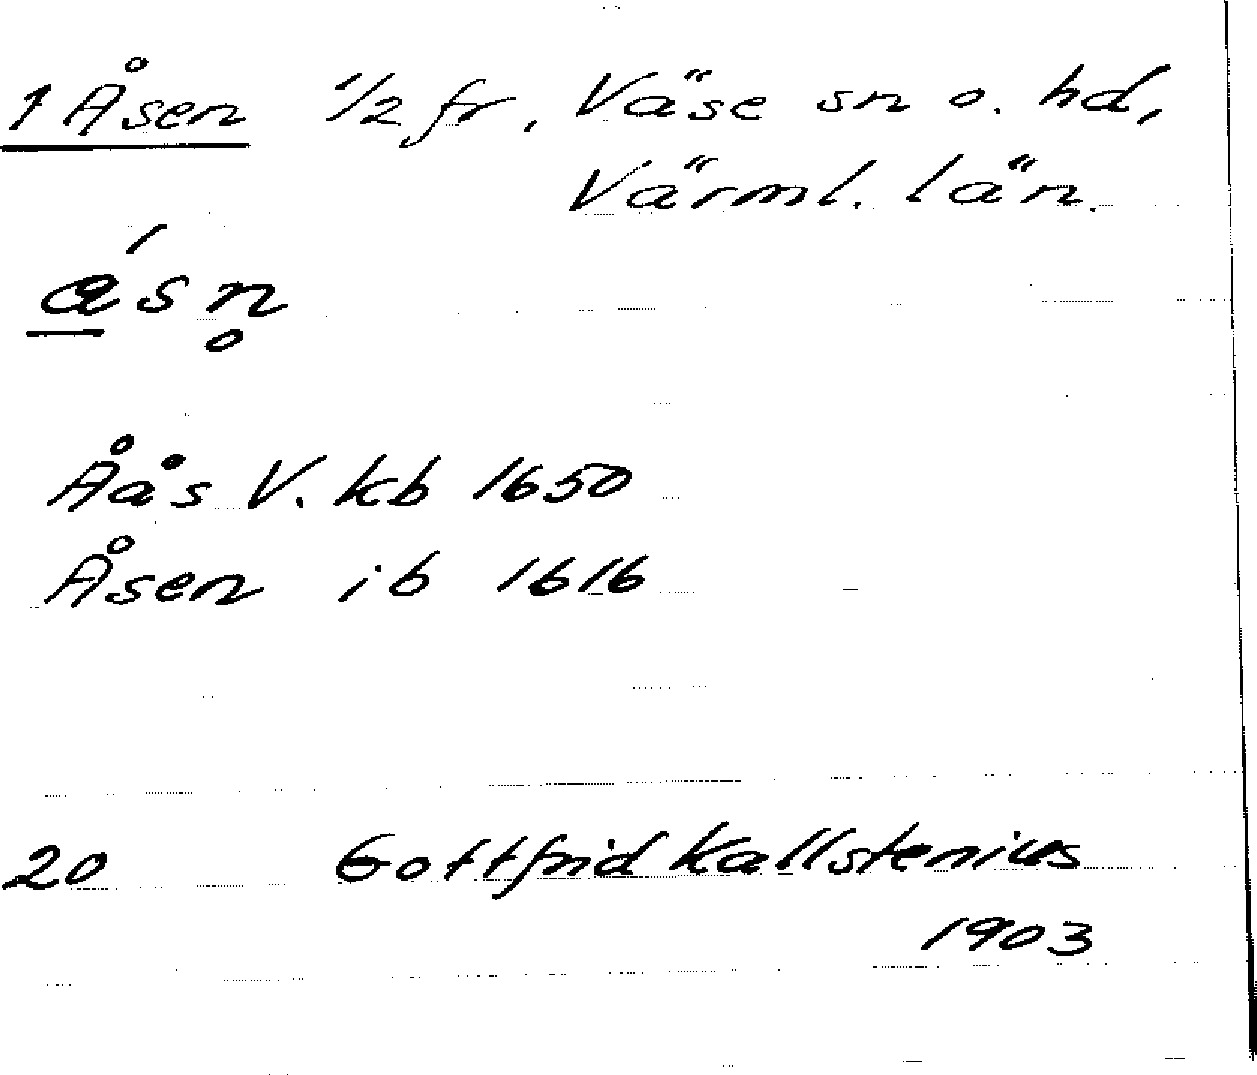 1 Åsen 1/2 fr, Väse sn o. hd,
Värml. län.
a̲´sn̥
Åås V. kb 1650
Åsen ib 1616
20 Gottfrid Kallstenius
1903